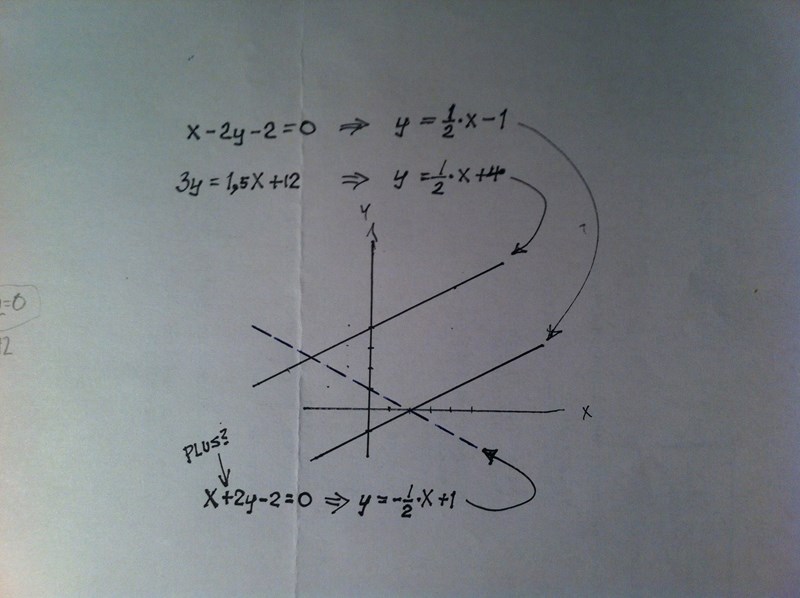 x-2y-2=0 ⇒ y=1/2·x-1
3y=1,5x+12 ⇒ y=1/2·x+4
Y
=0
12
X
PLUS?
X+2y-2=0 ⇒ y=-1/2·X+1